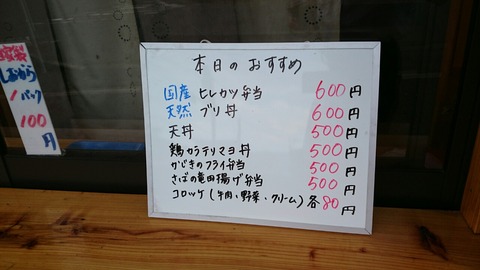 本日のおすすめ
国産 ヒレカツ弁当 600円
天然 ブリ丼 600円
天丼 500円
鶏カラテリマヨ丼 500円
かじきのフライ弁当 500円
さばの竜田揚げ弁当 500円
コロッケ(牛肉、野菜、クリーム)各80円
しおから
1パック
100
円